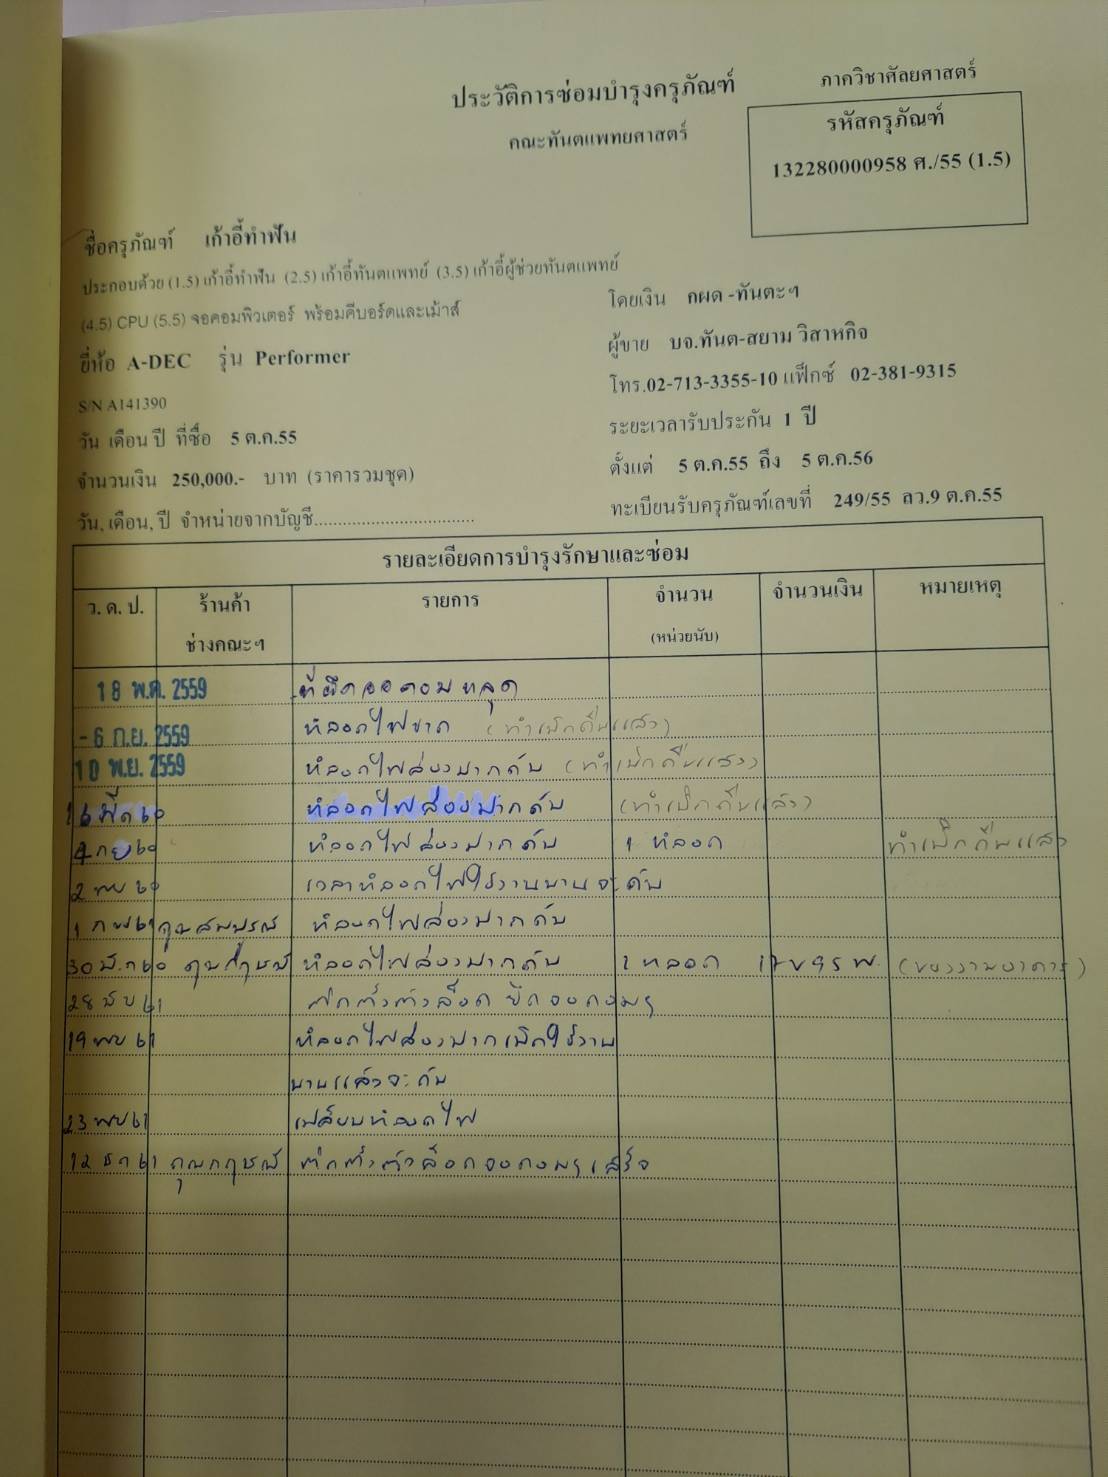 ประวัติการซ่อมบำรุงครุภัณฑ์
ภาควิชาศัลยศาสตร์
คณะทันตแพทยศาสตร์
รหัสครุภัณฑ์
132280000958 ศ./55 (1.5)
ชื่อครุภัณฑ์ เก้าอี้ทำฟัน
ประกอบด้วย (1.5) เก้าอี้ทำฟัน (2.5) เก้าอี้ทันตแพทย์ (3.5) เก้าอี้ผู้ช่วยทันตแพทย์
(4.5) CPU (5.5) จอคอมพิวเตอร์ พร้อมคีบอร์ดและเม้าส์
โดยเงิน กผด -ทันตะฯ
ยี่ห้อ A-DEC รุ่น Performer
ผู้ขาย บจ.ทันต-สยาม วิสาหกิจ
S/N A141390
โทร.02-713-3355-10 แฟ็กซ์ 02-381-9315
วัน เดือน ปี ที่ซื้อ 5 ต.ค.55
ระยะเวลารับประกัน 1 ปี
จำนวนเงิน 250,000.- บาท (ราคารวมชุด)
ตั้งแต่ 5 ต.ค.55 ถึง 5 ต.ค.56
วัน, เดือน, ปี จำหน่ายจากบัญชี..................................
ทะเบียนรับครุภัณฑ์เลขที่ 249/55 ลว.9 ต.ค.55
รายละเอียดการบำรุงรักษาและซ่อม
ว. ด. ป. ร้านค้า รายการ จำนวน จำนวนเงิน หมายเหตุ
ช่างคณะฯ (หน่วยนับ)
18 พ.ค. 2559 ที่ยึดจอคอมหลุด
-6 ก.ย. 2559 หลอดไฟขาด (ทำเบิกคืนแล้ว)
10 พ.ย. 2559 หลอดไฟส่องปากดับ (ทำเบิกคืนแล้ว)
หลอดไฟส่องปากดับ (ทำเบิกคืนแล้ว)
4 กย 60 หลอดไฟส่องปากดับ 1 หลอด ทำเบิกคืนแล้ว
2 พย 60 เวลาหลอดไฟใช้งานนานจะดับ
1 กพ 61 คุณสมบูรณ์ หลอดไฟส่องปากดับ
หลอดไฟส่องปากดับ 1 หลอด
61
19 พย 61 หลอดไฟส่องปากเปิดใช้งาน
นานแล้วจะดับ
23 พย 61 เปลี่ยนหลอดไฟ
12 ธค 61 คุณกฤษณ์ ติดตั้งตัวล็อกจอคอมฯ เสร็จ